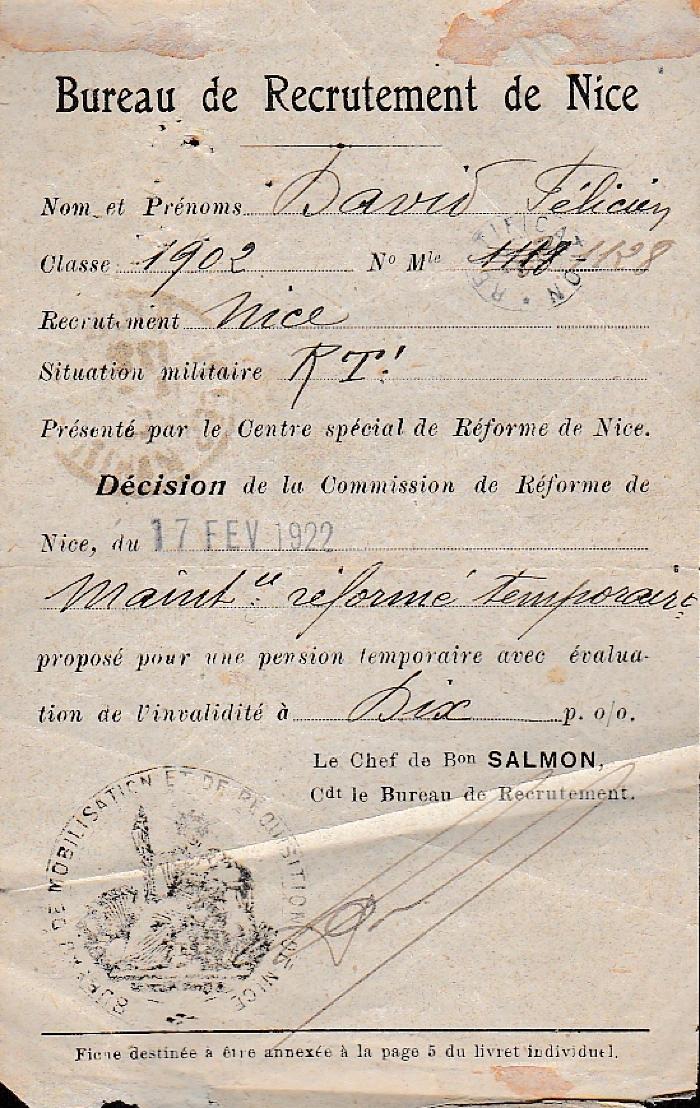 Bureau de Recrutement de Nice
Nom et Prénoms David Félicien
Classe 1902 No Mle 1128
RECTIFICATION
Recrutement Nice
Situation militaire RT!
Présenté par le Centre spécial de Réforme de Nice.
Décision de la Commission de Réforme de
Nice, du 17 FEV 1922
Maint u réformé temporaire
proposé pour une pension temporaire avec évalua-
tion de l'invalidité à Dix p. o/o.
Le Chef de Bon SALMON,
Cdt le Bureau de Recrutement.
BUREAU DE MOBILISATION ET DE REQUISITION DE NICE
Fiche destinée à être annexée à la page 5 du livret individuel.